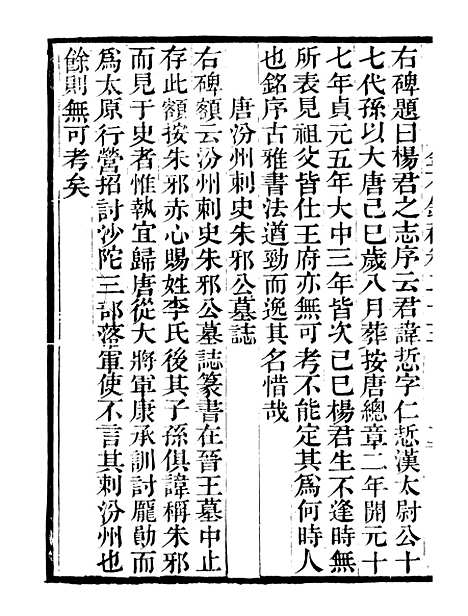 右碑題曰楊君之志序云君諱悊字仁悊漢太尉公十
七代孫以大唐己巳歲八月葬按唐總章二年開元十
七年貞元五年大中三年皆次己巳楊君生不逢時無
所表見祖父皆仕王府亦無可考不能定其為何時人
也銘序古雅書法遒勁而逸其名惜哉
唐汾州刺史朱邪公墓誌
右碑額云汾州刺史朱邪公墓誌篆書在晉王墓中止
存此額按朱邪赤心賜姓李氏後其子孫俱諱稱朱邪
而見于史者惟執宜歸唐從大將軍康承訓討龐勛而
為太原行營招討沙陀三部落軍使不言其刺汾州也
餘則無可考矣